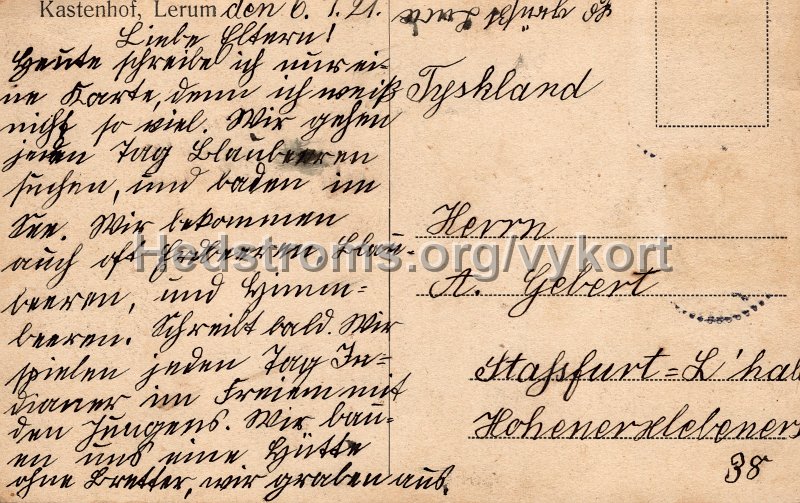 Kastenhof, Lerum den 6. 7. 21.
Liebe Eltern!
Heute schreibe ich nur ei-
ne Karte, denn ich weiß
nicht so viel. Wir gehen
jeden Tag Blaubeeren
suchen, und baden im
See. Wir bekommen
auch oft Erdbeeren, Blau-
beeren, und Himm-
beeren. Schreibt bald. Wir
spielen jeden Tag In-
dianer im Freiem mit
den Jungens. Wir bau-
en uns eine Hütte
ohne Bretter, wir graben aus.
Es grüßt
Tyskland
Herrn
A. Gebert
Stassfurt=L'hal
Hohenerxlebeners
38
Hedstroms.org/vykort